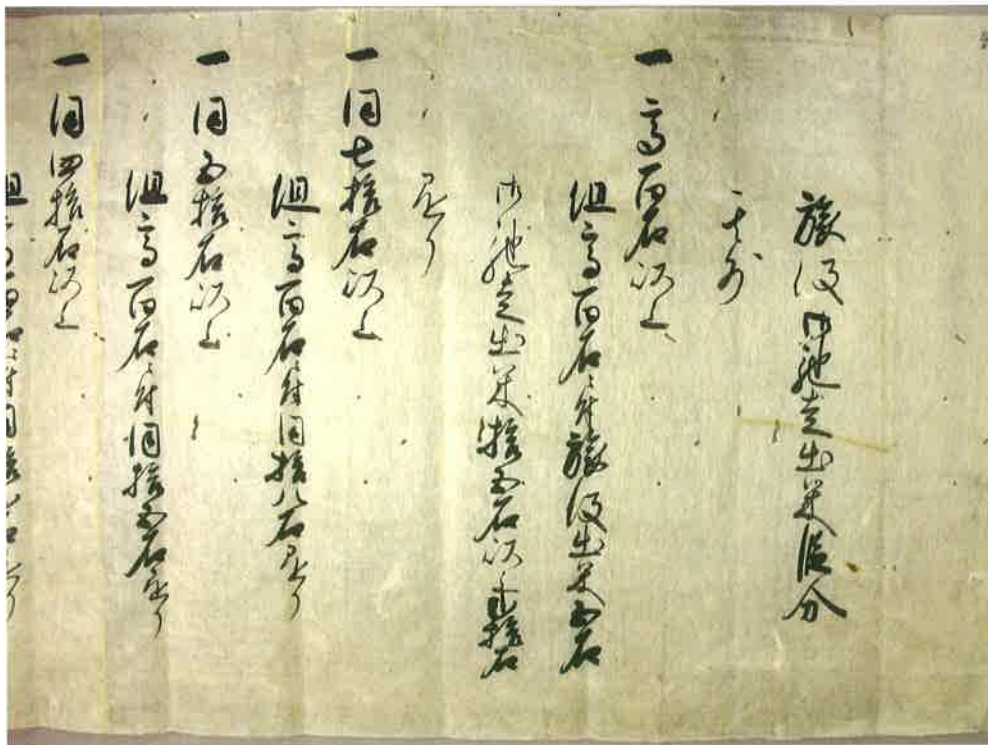 旅役御馳走出米 分
一高百石以上
但高百石ニ付旅役出米五石
御馳走出米拾五石以上弐拾石
懸り
一同七拾石以上
但高百石ニ付同拾八石懸り
一同五拾石以上
但高百石ニ付同拾五石懸り
一同四拾石以上